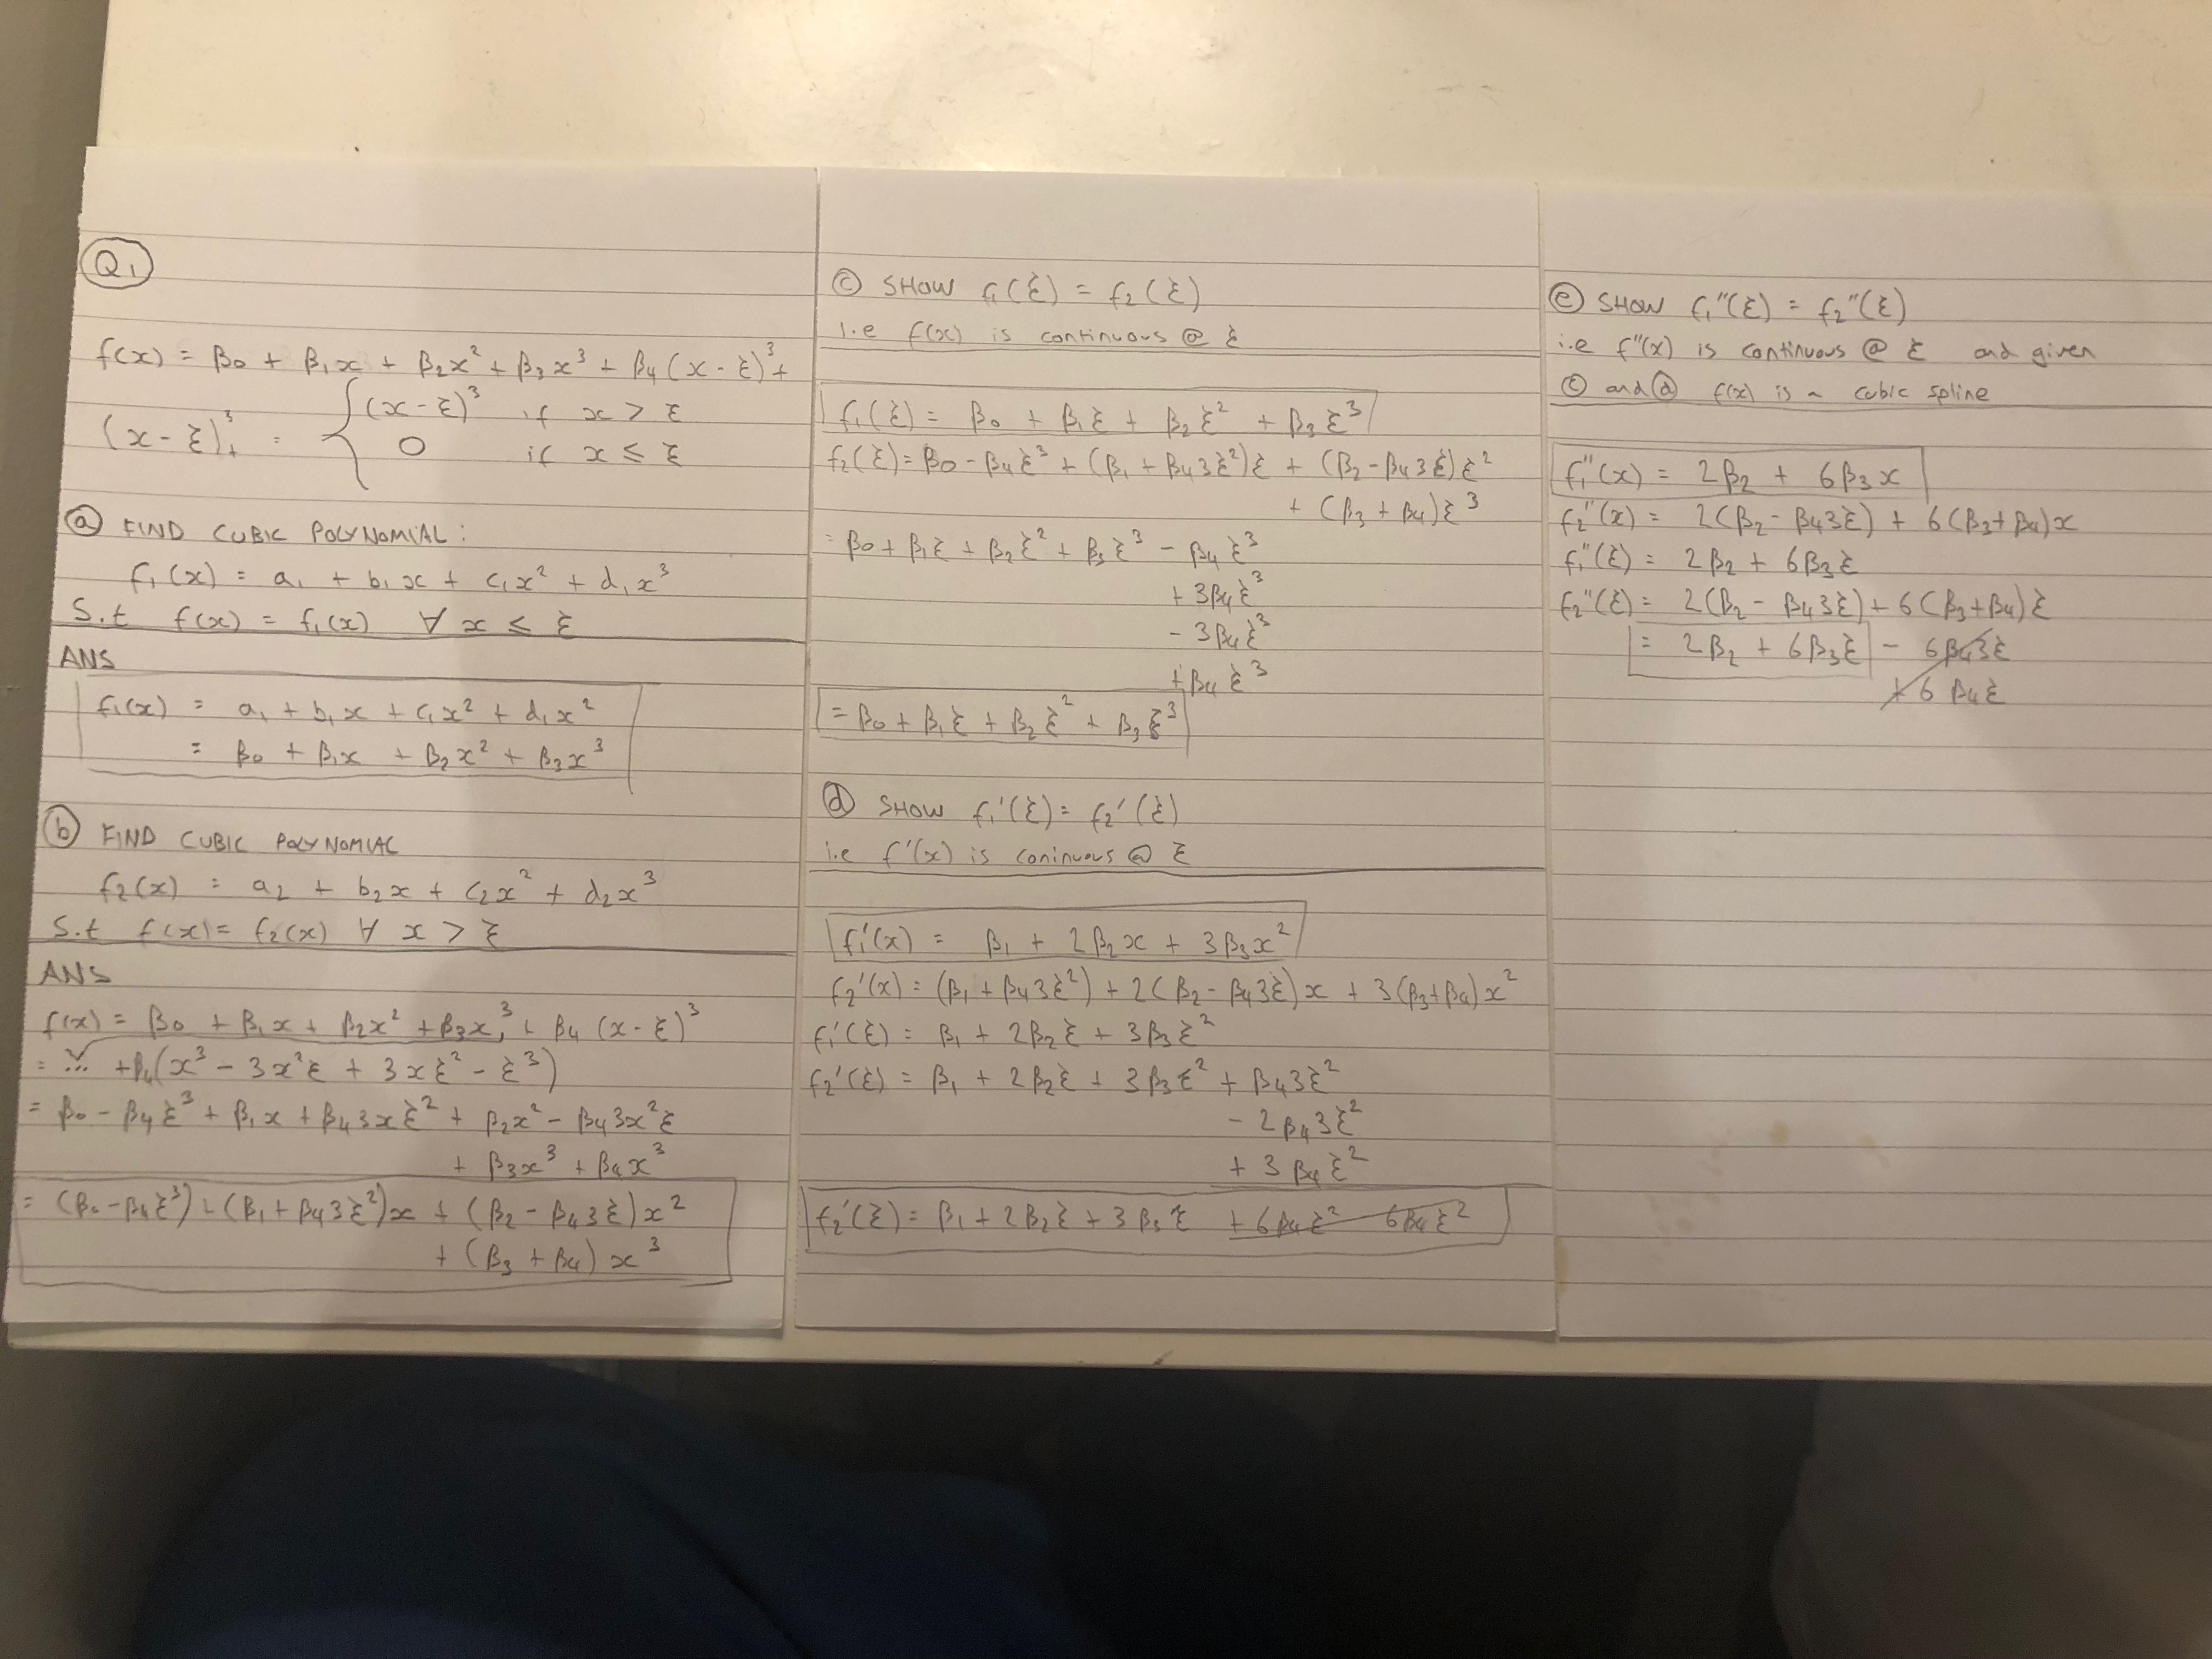 Q1
f(x) = β₀ + β₁x + β₂x² + β₃x³ + β₄(x - ξ)³₊
(x - ξ)³₊ = { (x - ξ)³ if x > ξ
0 if x ≤ ξ
ⓐ FIND CUBIC POLYNOMIAL:
f₁(x) = a₁ + b₁x + c₁x² + d₁x³
S.t f(x) = f₁(x) ∀ x ≤ ξ
ANS
f₁(x) = a₁ + b₁x + c₁x² + d₁x²
= β₀ + β₁x + β₂x² + β₃x³
ⓑ FIND CUBIC POLYNOMIAL
f₂(x) = a₂ + b₂x + c₂x² + d₂x³
S.t f(x) = f₂(x) ∀ x > ξ
ANS
f(x) = β₀ + β₁x + β₂x² + β₃x³ + β₄(x - ξ)³
= ... + β₄(x³ - 3x²ξ + 3xξ² - ξ³)
= β₀ - β₄ξ³ + β₁x + β₄3xξ² + β₂x² - β₄3x²ξ
+ β₃x³ + β₄x³
= (β₀ - β₄ξ³) + (β₁ + β₄3ξ²)x + (β₂ - β₄3ξ)x²
+ (β₃ + β₄)x³
ⓒ SHOW f₁(ξ) = f₂(ξ)
i.e f(x) is continuous @ ξ
f₁(ξ) = β₀ + β₁ξ + β₂ξ² + β₃ξ³
f₂(ξ) = β₀ - β₄ξ³ + (β₁ + β₄3ξ²)ξ + (β₂ - β₄3ξ)ξ²
+ (β₃ + β₄)ξ³
= β₀ + β₁ξ + β₂ξ² + β₃ξ³ - β₄ξ³
+ 3β₄ξ³
- 3β₄ξ³
+ β₄ξ³
= β₀ + β₁ξ + β₂ξ² + β₃ξ³
ⓓ SHOW f₁'(ξ) = f₂'(ξ)
i.e f'(x) is coninuous @ ξ
f₁'(x) = β₁ + 2β₂x + 3β₃x²
f₂'(x) = (β₁ + β₄3ξ²) + 2(β₂ - β₄3ξ)x + 3(β₃+β₄)x²
f₁'(ξ) = β₁ + 2β₂ξ + 3β₃ξ²
f₂'(ξ) = β₁ + 2β₂ξ + 3β₃ξ² + β₄3ξ²
- 2β₄3ξ²
+ 3β₄ξ²
f₂'(ξ) = β₁ + 2β₂ξ + 3β₃ξ + 6β₄ξ² - 6β₄ξ²
ⓔ SHOW f₁''(ξ) = f₂''(ξ)
i.e f''(x) is continuous @ ξ and given
ⓒ and ⓓ f(x) is a cubic spline
f₁''(x) = 2β₂ + 6β₃x
f₂''(x) = 2(β₂ - β₄3ξ) + 6(β₃+β₄)x
f₁''(ξ) = 2β₂ + 6β₃ξ
f₂''(ξ) = 2(β₂ - β₄3ξ) + 6(β₃+β₄)ξ
= 2β₂ + 6β₃ξ - 6β₄3ξ
+ 6β₄ξ